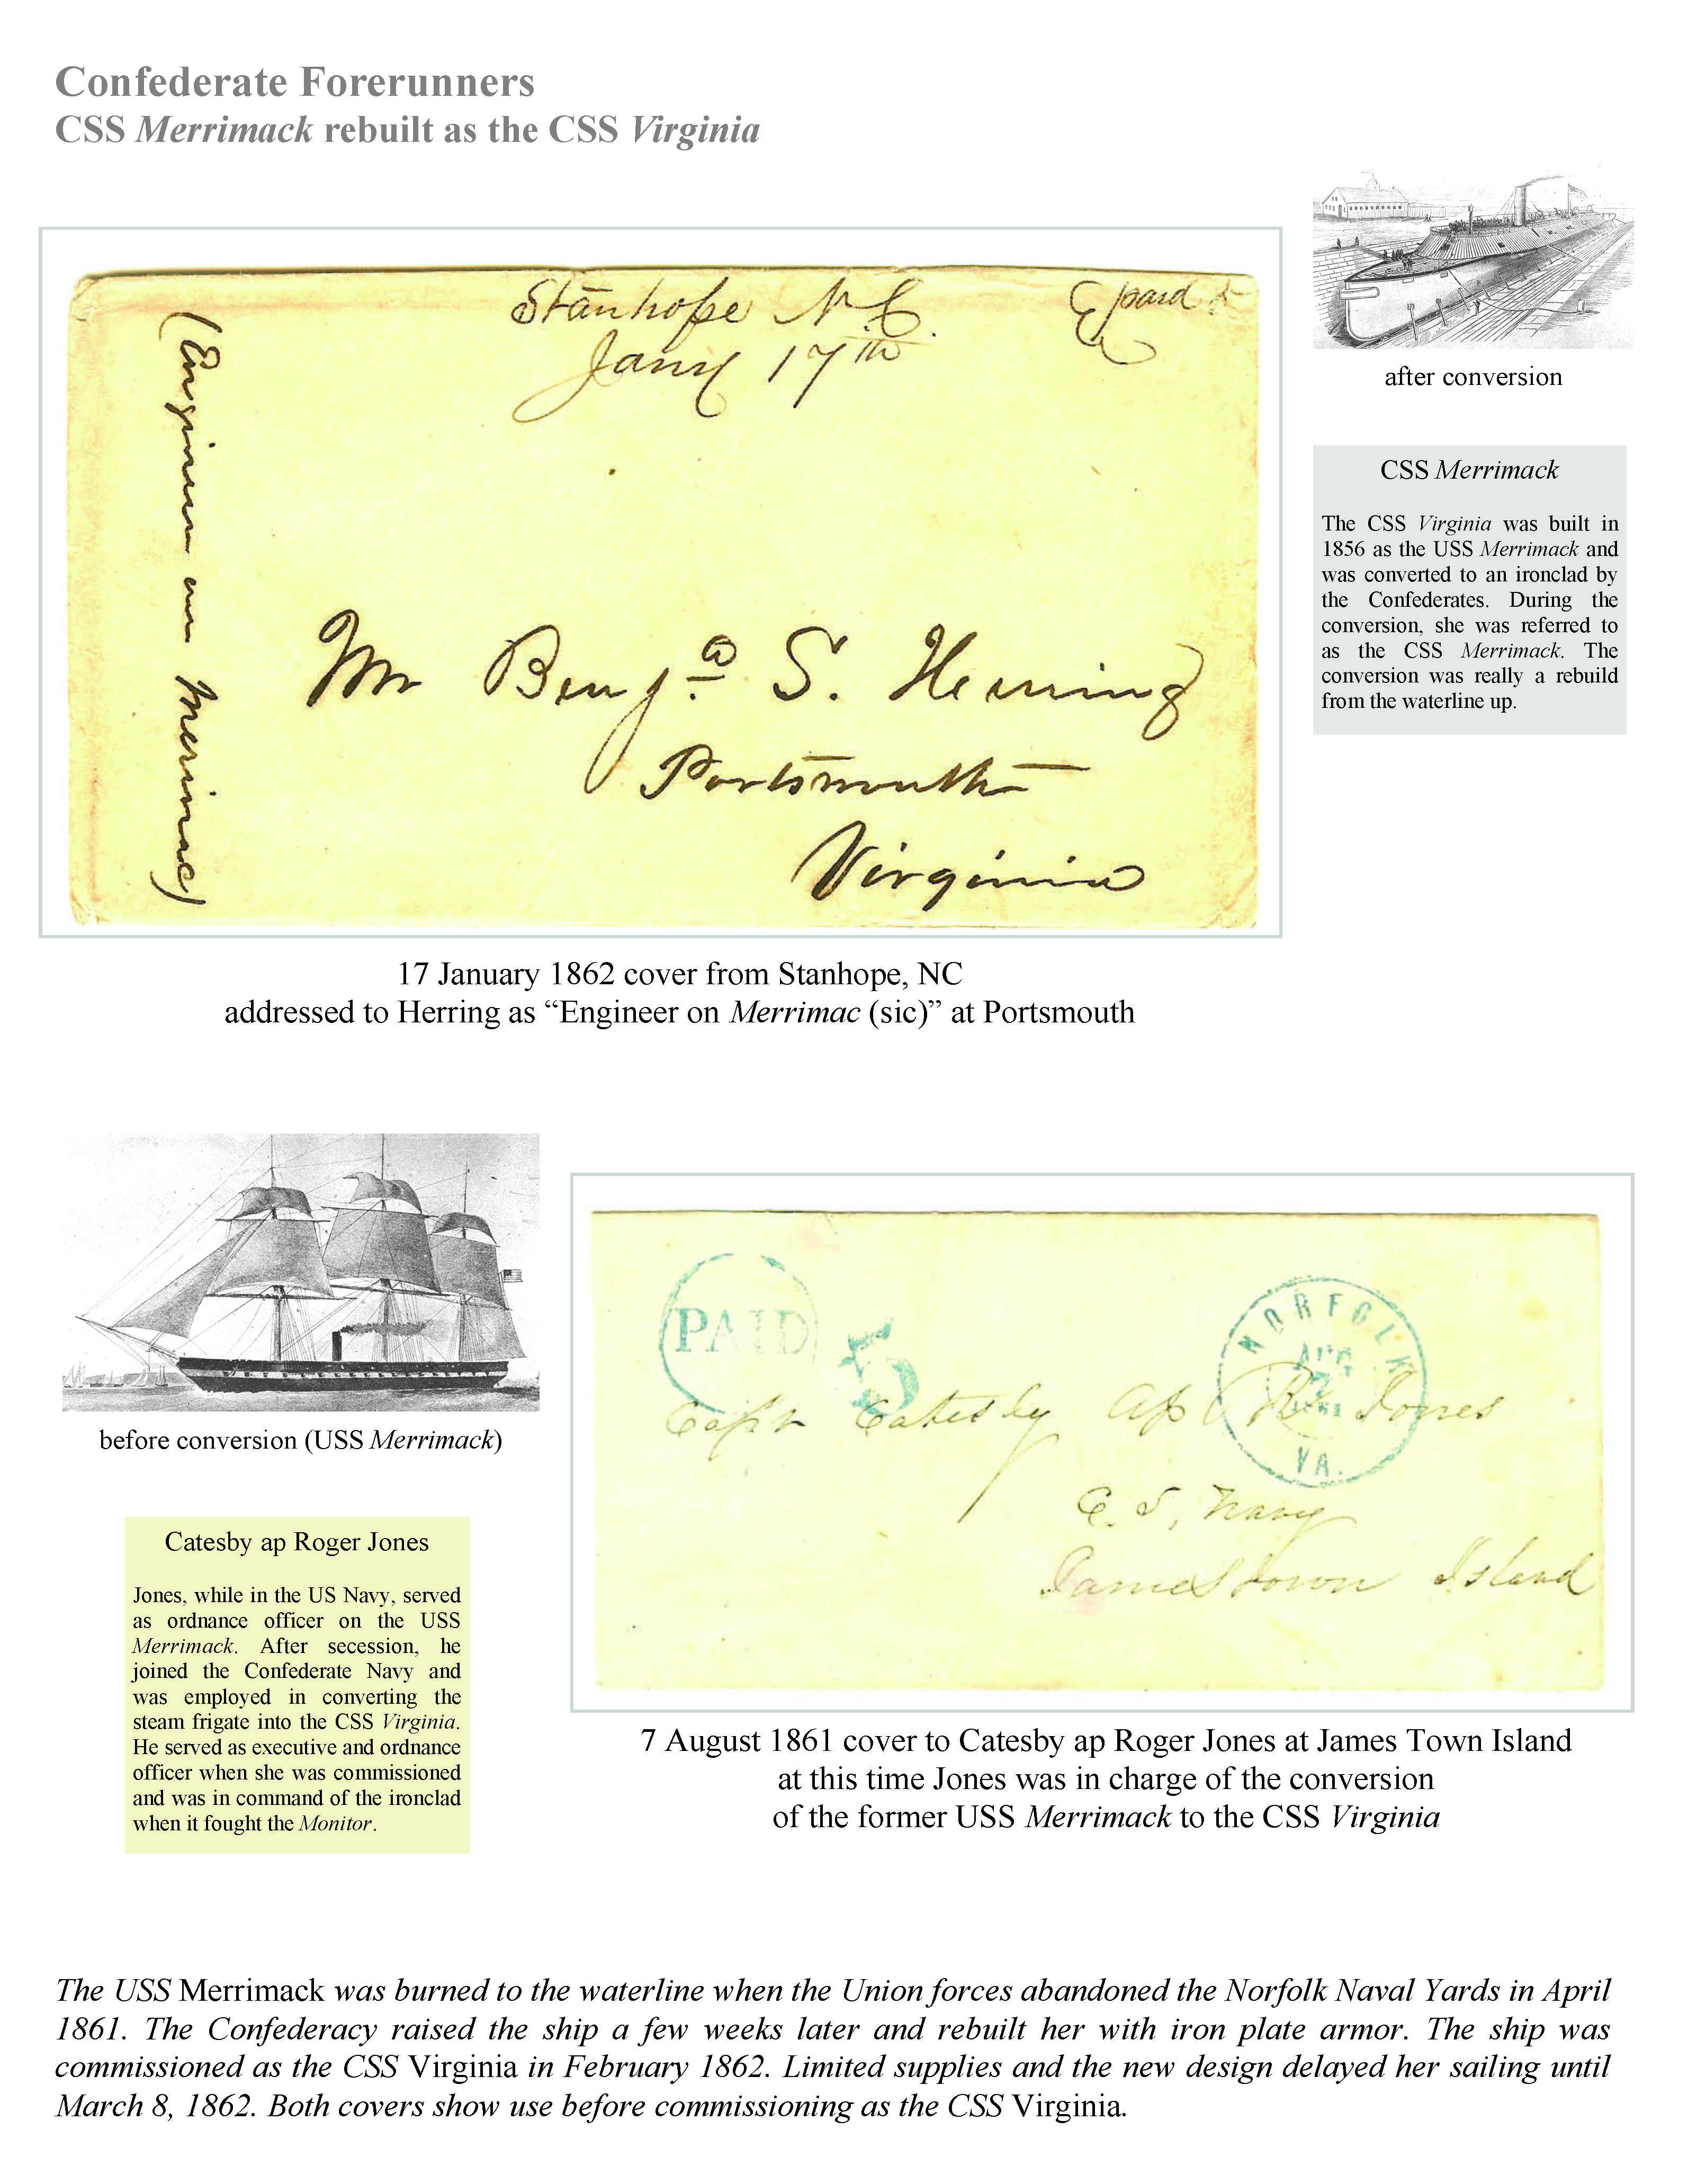 Confederate Forerunners
CSS Merrimack rebuilt as the CSS Virginia
Stanhope N C.
Jany 17th
paid 5
(Engineer on Merrimac)
Mr Benja. S. Herring
Portsmouth
Virginia
after conversion
CSS Merrimack
The CSS Virginia was built in
1856 as the USS Merrimack and
was converted to an ironclad by
the Confederates. During the
conversion, she was referred to
as the CSS Merrimack. The
conversion was really a rebuild
from the waterline up.
17 January 1862 cover from Stanhope, NC
addressed to Herring as “Engineer on Merrimac (sic)” at Portsmouth
before conversion (USS Merrimack)
Catesby ap Roger Jones
Jones, while in the US Navy, served
as ordnance officer on the USS
Merrimack. After secession, he
joined the Confederate Navy and
was employed in converting the
steam frigate into the CSS Virginia.
He served as executive and ordnance
officer when she was commissioned
and was in command of the ironclad
when it fought the Monitor.
PAID 5
NORFOLK
AUG
7
1861
VA.
Capt Catesby ap R. Jones
C. S. Navy
Jamestown Island
7 August 1861 cover to Catesby ap Roger Jones at James Town Island
at this time Jones was in charge of the conversion
of the former USS Merrimack to the CSS Virginia
The USS Merrimack was burned to the waterline when the Union forces abandoned the Norfolk Naval Yards in April
1861. The Confederacy raised the ship a few weeks later and rebuilt her with iron plate armor. The ship was
commissioned as the CSS Virginia in February 1862. Limited supplies and the new design delayed her sailing until
March 8, 1862. Both covers show use before commissioning as the CSS Virginia.